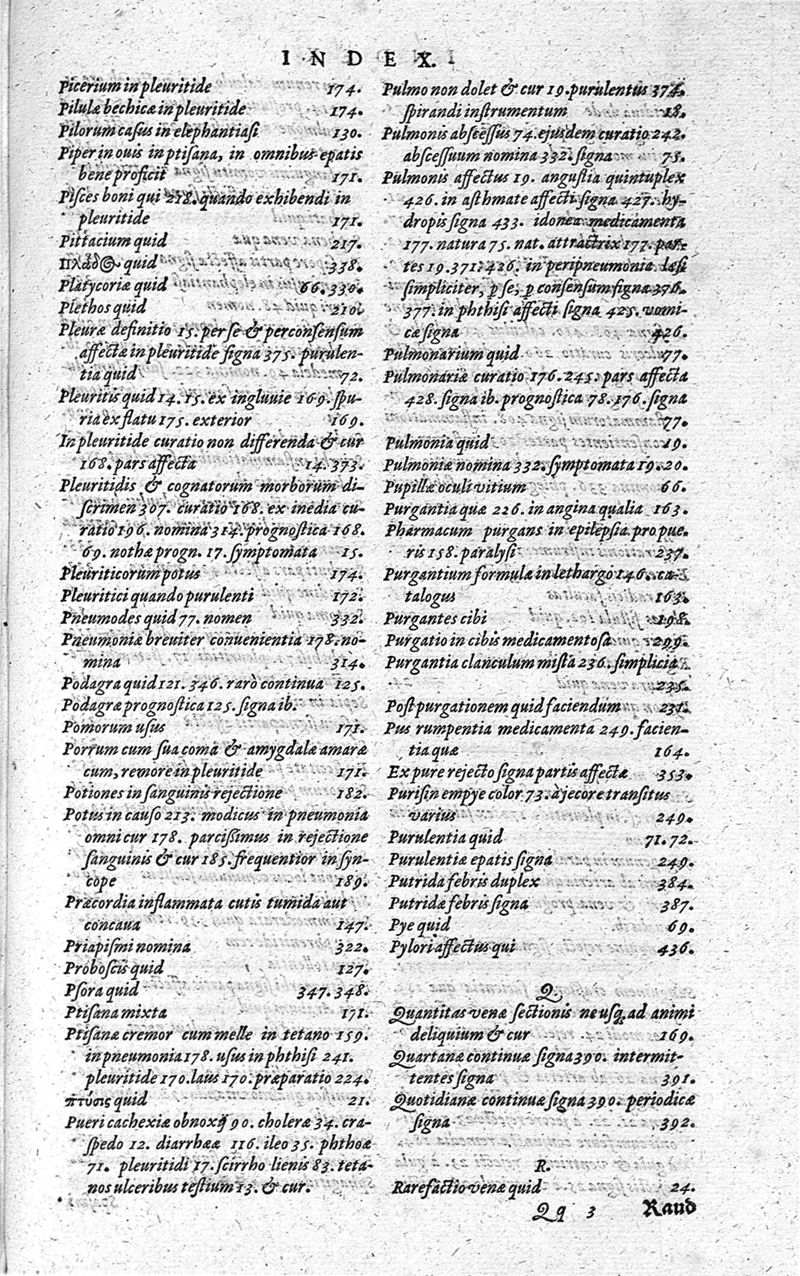 INDEX.
Picerium in pleuritide 174.
Pilulæ bechicæ in pleuritide 174.
Pilorum casus in elephantiasi 130.
Piper in ovis in ptisana, in omnibus epatis
bene proficit 171.
Pisces boni qui 218. quando exhibendi in
pleuritide 171.
Pittacium quid 217.
quid 338.
Platycoriæ quid 66. 330.
Plethos quid 210.
Pleuræ definitio 15. per se & per consensum
affectæ in pleuritide signa 375. purulen-
tia quid 72.
Pleuritis quid 14. 15. ex ingluvie 169. spu-
ria ex flatu 175. exterior 169.
In pleuritide curatio non differenda & cur
168. pars affecta 14. 373.
Pleuritidis & cognatorum morborum di-
scrimen 307. curatio 168. ex inedia cu-
ratio 196. nomina 314. prognostica 168.
69. nothæ progn. 17. symptomata 15.
Pleuriticorum potus 174.
Pleuritici quando purulenti 172.
Pneumodes quid 77. nomen 332.
Pneumoniæ breviter convenientia 178. no-
mina 314.
Podagra quid 121. 346. rarò continua 125.
Podagræ prognostica 125. signa ib.
Pomorum usus 171.
Porrum cum sua coma & amygdalæ amaræ
cum, remore in pleuritide 171.
Potiones in sanguinis rejectione 182.
Potus in causo 213. modicus in pneumonia
omni cur 178. parcißimus in rejectione
sanguinis & cur 185. frequentior in syn-
cope 189.
Præcordia inflammata cutis tumida aut
concava 147.
Priapismi nomina 322.
Proboscis quid 127.
Psora quid 347. 348.
Ptisana mixta 171.
Ptisanæ cremor cum melle in tetano 159.
in pneumonia 178. usus in phthisi 241.
pleuritide 170. laus 170. præparatio 224.
πτύσις quid 21.
Pueri cachexiæ obnoxij 90. choleræ 34. cra-
spedo 12. diarrhææ 116. ileo 35. phthoæ
71. pleuritidi 17. scirrho lienis 83. teta-
nos ulceribus testium 13. & cur.
Pulmo non dolet & cur 19. purulentus 374.
spirandi instrumentum 18.
Pulmonis abscessus 74. ejusdem curatio 242.
abscessuum nomina 332. signa 75.
Pulmonis affectus 19. angustia quintuplex
426. in asthmate affecti signa 427. hy-
dropis signa 433. idonea medicamenta
177. natura 75. nat. attractrix 177. par-
tes 19. 371. 426. in peripneumonia læsi
simpliciter, p se, p consensum signa 376.
377. in phthisi affecti signa 425. vomi-
cæ signa 426.
Pulmonarium quid 77.
Pulmonariæ curatio 176. 245. pars affecta
428. signa ib. prognostica 78. 176. signa
77.
Pulmonia quid 19.
Pulmoniæ nomina 332. symptomata 19. 20.
Pupillæ oculi vitium 66.
Purgantia quæ 226. in angina qualia 163.
Pharmacum purgans in epilepsia pro pue-
ris 158. paralysi 237.
Purgantium formulæ in lethargo 146. ca-
talogus 163.
Purgantes cibi 198.
Purgatio in cibis medicamentosa 299.
Purgantia clanculum mista 236. simplicia
235.
Post purgationem quid faciendum 231.
Pus rumpentia medicamenta 249. facien-
tia quæ 164.
Ex pure rejecto signa partis affectæ 353.
Puris in empye color 73. à jecore transitus
varius 249.
Purulentia quid 71. 72.
Purulentiæ epatis signa 249.
Putrida febris duplex 384.
Putridæ febris signa 387.
Pye quid 69.
Pylori affectus qui 436.
Q.
Quantitas venæ sectionis ne usq; ad animi
deliquium & cur 169.
Quartanæ continuæ signa 390. intermit-
tentes signa 391.
Quotidianæ continuæ signa 390. periodicæ
signa 392.
R.
Rarefactio venæ quid 24.
Qq 3 Raud